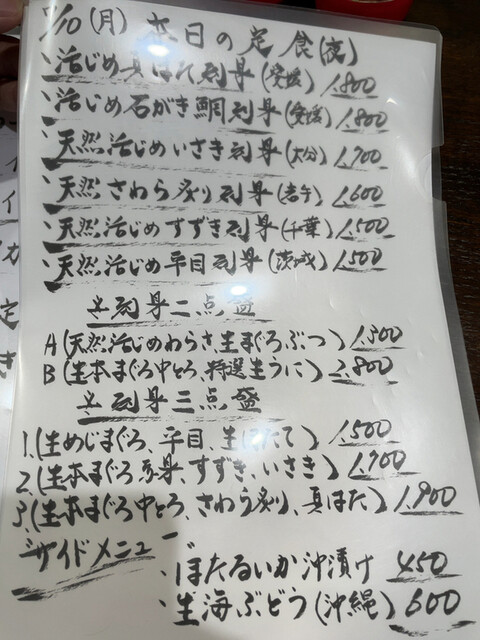 /10(月) 本日の定食(夜)
、活じめ真はた刺身(愛媛) 1,800
、活じめ石がき鯛刺身(愛媛) 1,800
、天然活じめいさき刺身(大分) 1,700
、天然さわら炙り刺身(岩手) 1,600
、天然活じめすずき刺身(千葉) 1,500
、天然活じめ平目刺身(茨城) 1,500
刺身二点盛
A(天然活じめわらさ、生まぐろぶつ) 1,300
B(生本まぐろ中とろ、特選生うに) 2,800
刺身三点盛
1.(生めじまぐろ、平目、生ほたて) 1,500
2.(生本まぐろ赤身、すずき、いさき) 1,700
3.(生本まぐろ中とろ、さわら炙り、真はた) 1,900
サイドメニュー
、ほたるいか沖漬け 450
、生海ぶどう(沖縄) 600